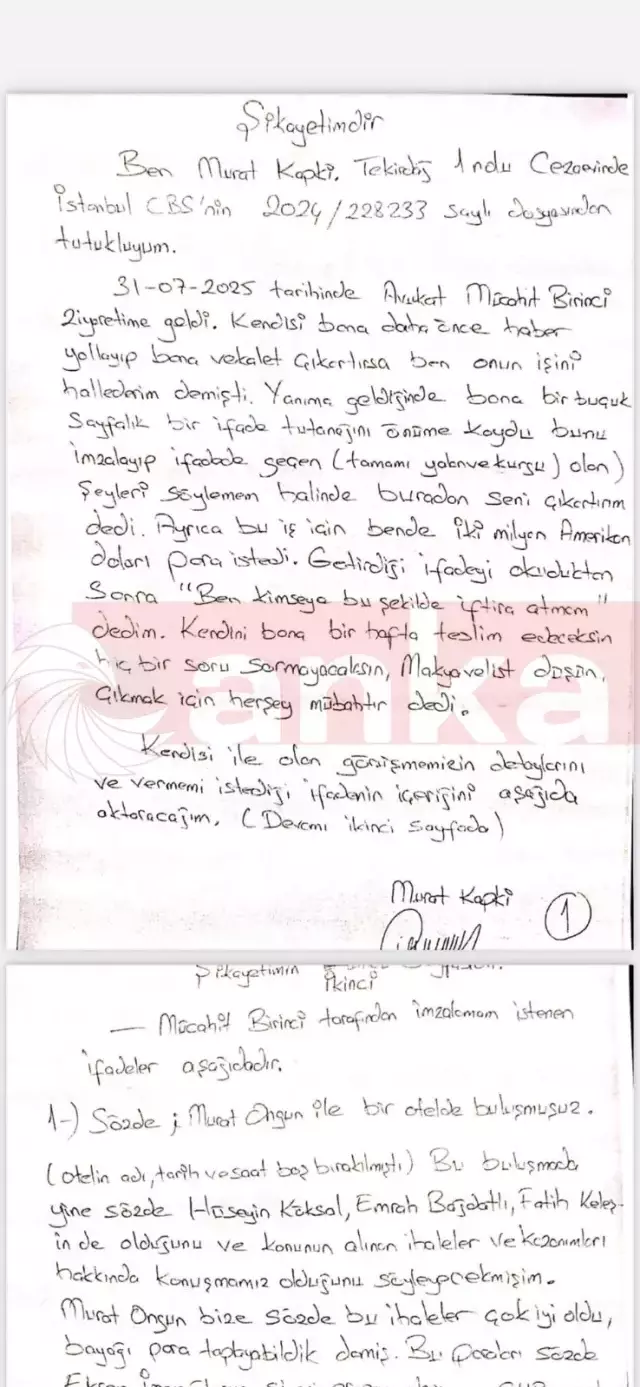 Şikayetimdir
Ben Murat Kapki. Tekirdağ 1 nolu Cezaevinde
İstanbul CBS'nin 2024/228233 sayılı dosyasından
tutukluyum.
31-07-2025 tarihinde Avukat Mücahit Birinci
Ziyaretime geldi. Kendisi bana daha önce haber
yollayıp bana vekalet çıkartırsa ben onun işini
hallederim demişti. Yanıma geldiğinde bana bir buçuk
Sayfalık bir ifade tutanağını önüme koydu bunu
imzalayıp ifadede geçen (tamamı yalan ve kurgu) olan)
Şeyleri söylemem halinde buradan seni çıkartırım
dedi. Ayrıca bu iş için bende iki milyon Amerikan
doları para istedi. Getirdiği ifadeyi okuduktan
Sonra "Ben kimseye bu şekilde iftira atmam"
dedim. Kendini bana bir hafta teslim edeceksin
hiç bir soru sormayacaksın, Makyavelist düşün,
Çıkmak için herşey mübahtır dedi.
anka
Kendisi ile olan görüşmemizin detaylarını
ve vermemi istediği ifadenin içeriğini aşağıda
aktaracağım. (Devamı ikinci sayfada)
Murat Kapki
1
Şikayetimin İkinci
— Mücahit Birinci tarafından imzalamam istenen
ifadeler aşağıdadır.
1-) Sözde ; Murat Ongun ile bir otelde buluşmuşuz.
(otelin adı, tarih ve saat boş bırakılmıştı) Bu buluşmada
yine sözde Hüseyin Köksal, Emrah Bağdatlı, Fatih Keleş-
in de olduğunu ve konunun alınan ihaleler ve kazanımları
hakkında konuşmamız olduğunu söyleyecekmişim.
Murat Ongun bize sözde bu ihaleler çok iyi oldu,
bayağı para toplayabildik demiş. Bu paraları sözde